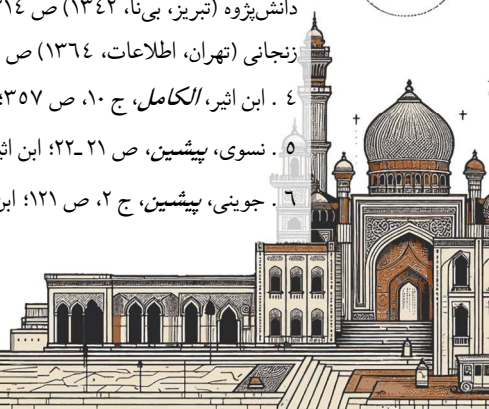 دانش‌پژوه (تبریز، بی‌نا، ١٣٤٢) ص ٢١٤
زنجانی (تهران، اطلاعات، ١٣٦٤) ص
٤ . ابن اثیر، الکامل، ج ١٠، ص ٣٥٧؛
٥ . نسوی، پیشین، ص ٢١ ـ ٢٢؛ ابن اثی
٦ . جوینی، پیشین، ج ٢، ص ١٢١؛ ابن